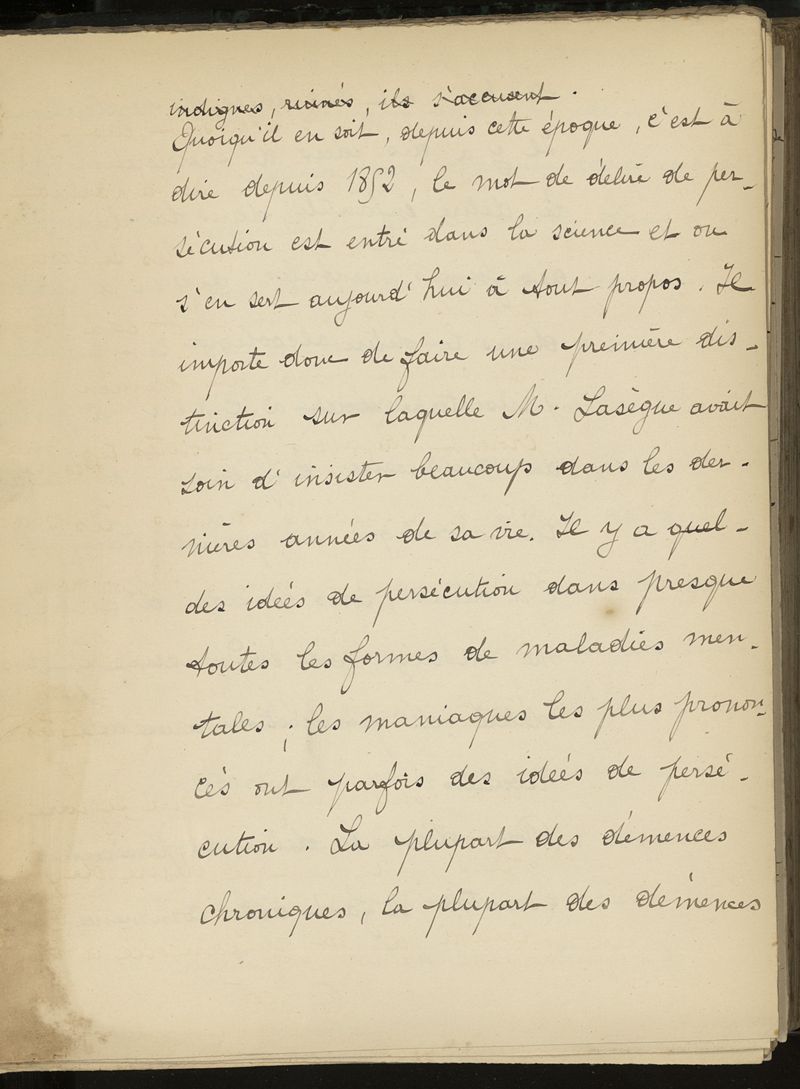 indignes, ruinés, ils s'accusent.
Quoiqu'il en soit, depuis cette époque, c'est à
dire depuis 1852, le mot de délire de per-
sécution est entré dans la science et on
s'en sert aujourd'hui à tout propos. Il
importe donc de faire une première dis-
tinction sur laquelle M. Lasègue avait
soin d'insister beaucoup dans les der-
nières années de sa vie. Il y a quel-
des idées de persécution dans presque
toutes les formes de maladies men-
tales ; les maniaques les plus pronon-
cés ont parfois des idées de persé-
cution. La plupart des démences
chroniques, la plupart des démences